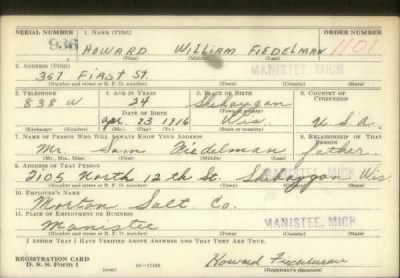 SERIAL NUMBER 1. NAME (Print) ORDER NUMBER
936 HOWARD WILLIAM FIEDELMAN 1101
(First) (Middle) (Last)
2. ADDRESS (Print) MANISTEE, MICH
367 FIRST St.
(Number and street or R. F. D. number) (Town) (County) (State)
3. TELEPHONE 4. AGE IN YEARS 5. PLACE OF BIRTH 6. COUNTRY OF CITIZENSHIP
838 W. 24 Sheboygan
DATE OF BIRTH (Town or county)
Apr 23 1916 Wis. U.S.A.
(Exchange) (Number) (Mo.) (Day) (Yr.) (State or country)
7. NAME OF PERSON WHO WILL ALWAYS KNOW YOUR ADDRESS 8. RELATIONSHIP OF THAT PERSON
Mr. Sam Fiedelman father
(Mr., Mrs., Miss) (First) (Middle) (Last)
9. ADDRESS OF THAT PERSON
2105 North 12th St. Sheboygan Wis.
(Number and street or R. F. D. number) (Town) (County) (State)
10. EMPLOYER'S NAME
Morton Salt Co.
11. PLACE OF EMPLOYMENT OR BUSINESS MANISTEE, MICH
Manistee
(Number and street or R. F. D. number) (Town) (County) (State)
I AFFIRM THAT I HAVE VERIFIED ABOVE ANSWERS AND THAT THEY ARE TRUE.
REGISTRATION CARD Howard Fiedelman
D. S. S. Form 1 (over) (Registrant's signature)